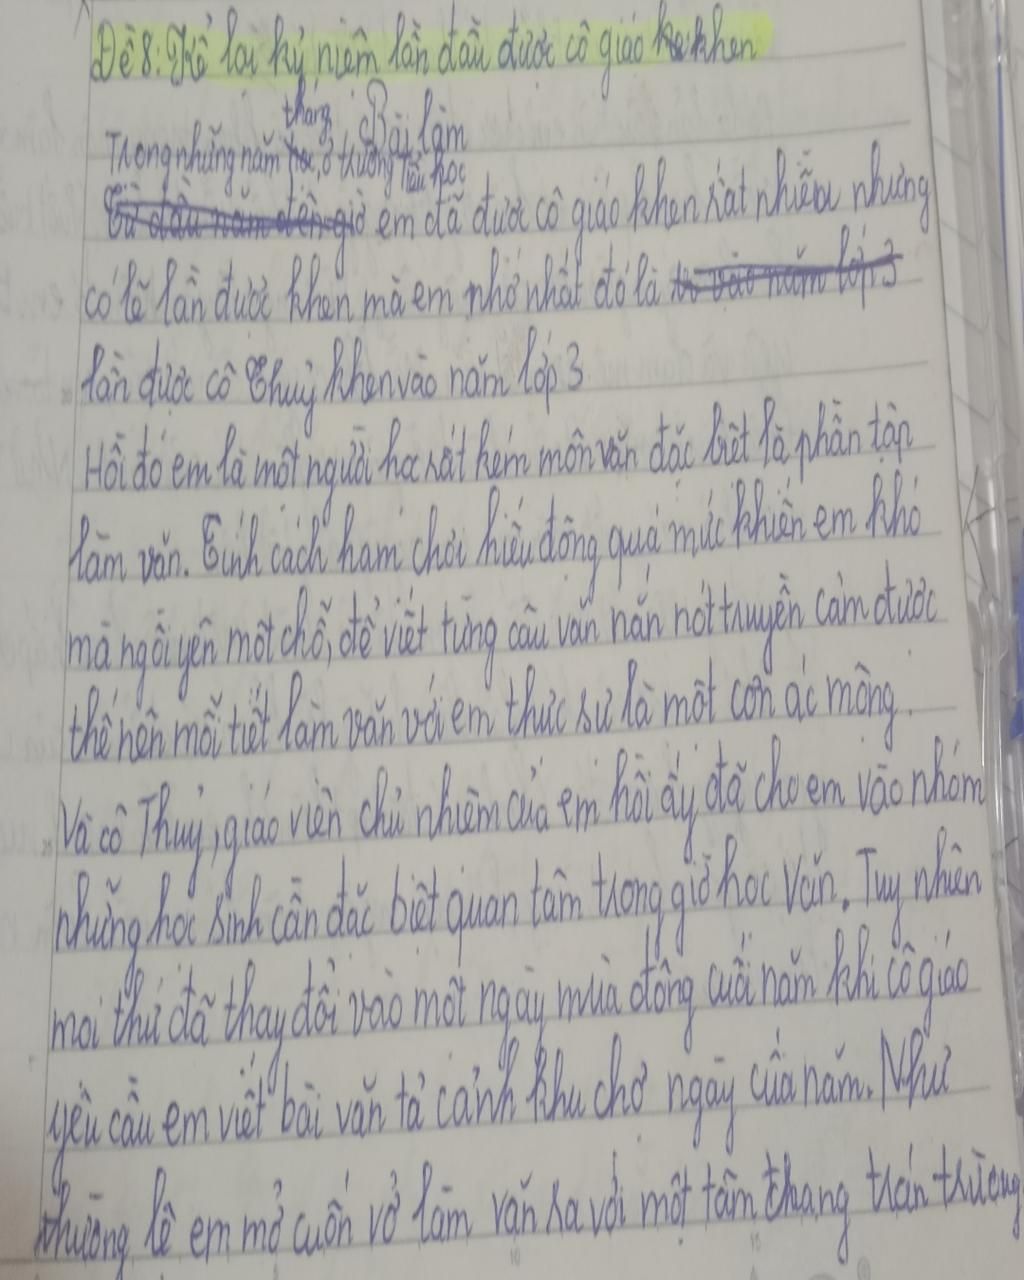 Đề 8: Kể lại kỷ niệm lần đầu được cô giáo khen
Bài làm
Trong những năm tháng ở trường tiểu học
em đã được cô giáo khen rất nhiều nhưng
có lẽ lần được khen mà em nhớ nhất đó là
lần được cô Thuỷ khen vào năm lớp 3
Hồi đó em là một người học rất kém môn văn đặc biệt là phần tập
làm văn. Tính cách ham chơi hiếu động quá mức khiến em khó
mà ngồi yên một chỗ, để viết từng câu văn nắn nót truyền cảm được
thế nên mỗi tiết làm văn với em thực sự là một cơn ác mộng.
Và cô Thuỷ, giáo viên chủ nhiệm của em hồi ấy đã cho em vào nhóm
những học sinh cần đặc biệt quan tâm trong giờ học văn. Tuy nhiên
mọi thứ đã thay đổi vào một ngày mùa đông cuối năm khi cô giáo
yêu cầu em viết bài văn tả cảnh khu chợ ngày cuối năm. Như
thường lệ em mở cuốn vở làm văn ra với một tâm trạng chán chường